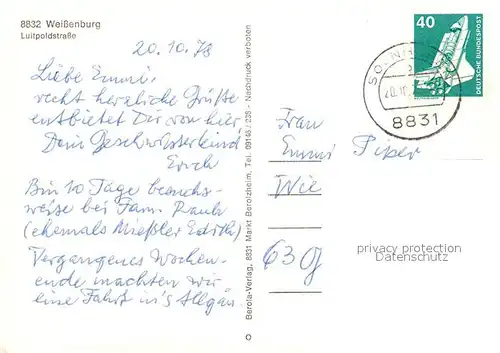 8832 Weißenburg
Luitpoldstraße
20.10.78
Liebe Emmi.
recht herzliche Grüße
entbietet Dir von hier
Dein Geschwisterkind
Erich
Bin 10 Tage besuchs-
weise bei Fam.
(ehemals Mießler
Vergangenes Wochen-
ende machten wir
eine Fahrt in's Allgäu
Berola-Verlag, 8831 Markt Berolzheim, Tel. 09146/226 - Nachdruck verboten
40
DEUTSCHE BUNDESPOST
8831
Frau
Emmi Piper
Wie
630
privacy protection
Datenschutz